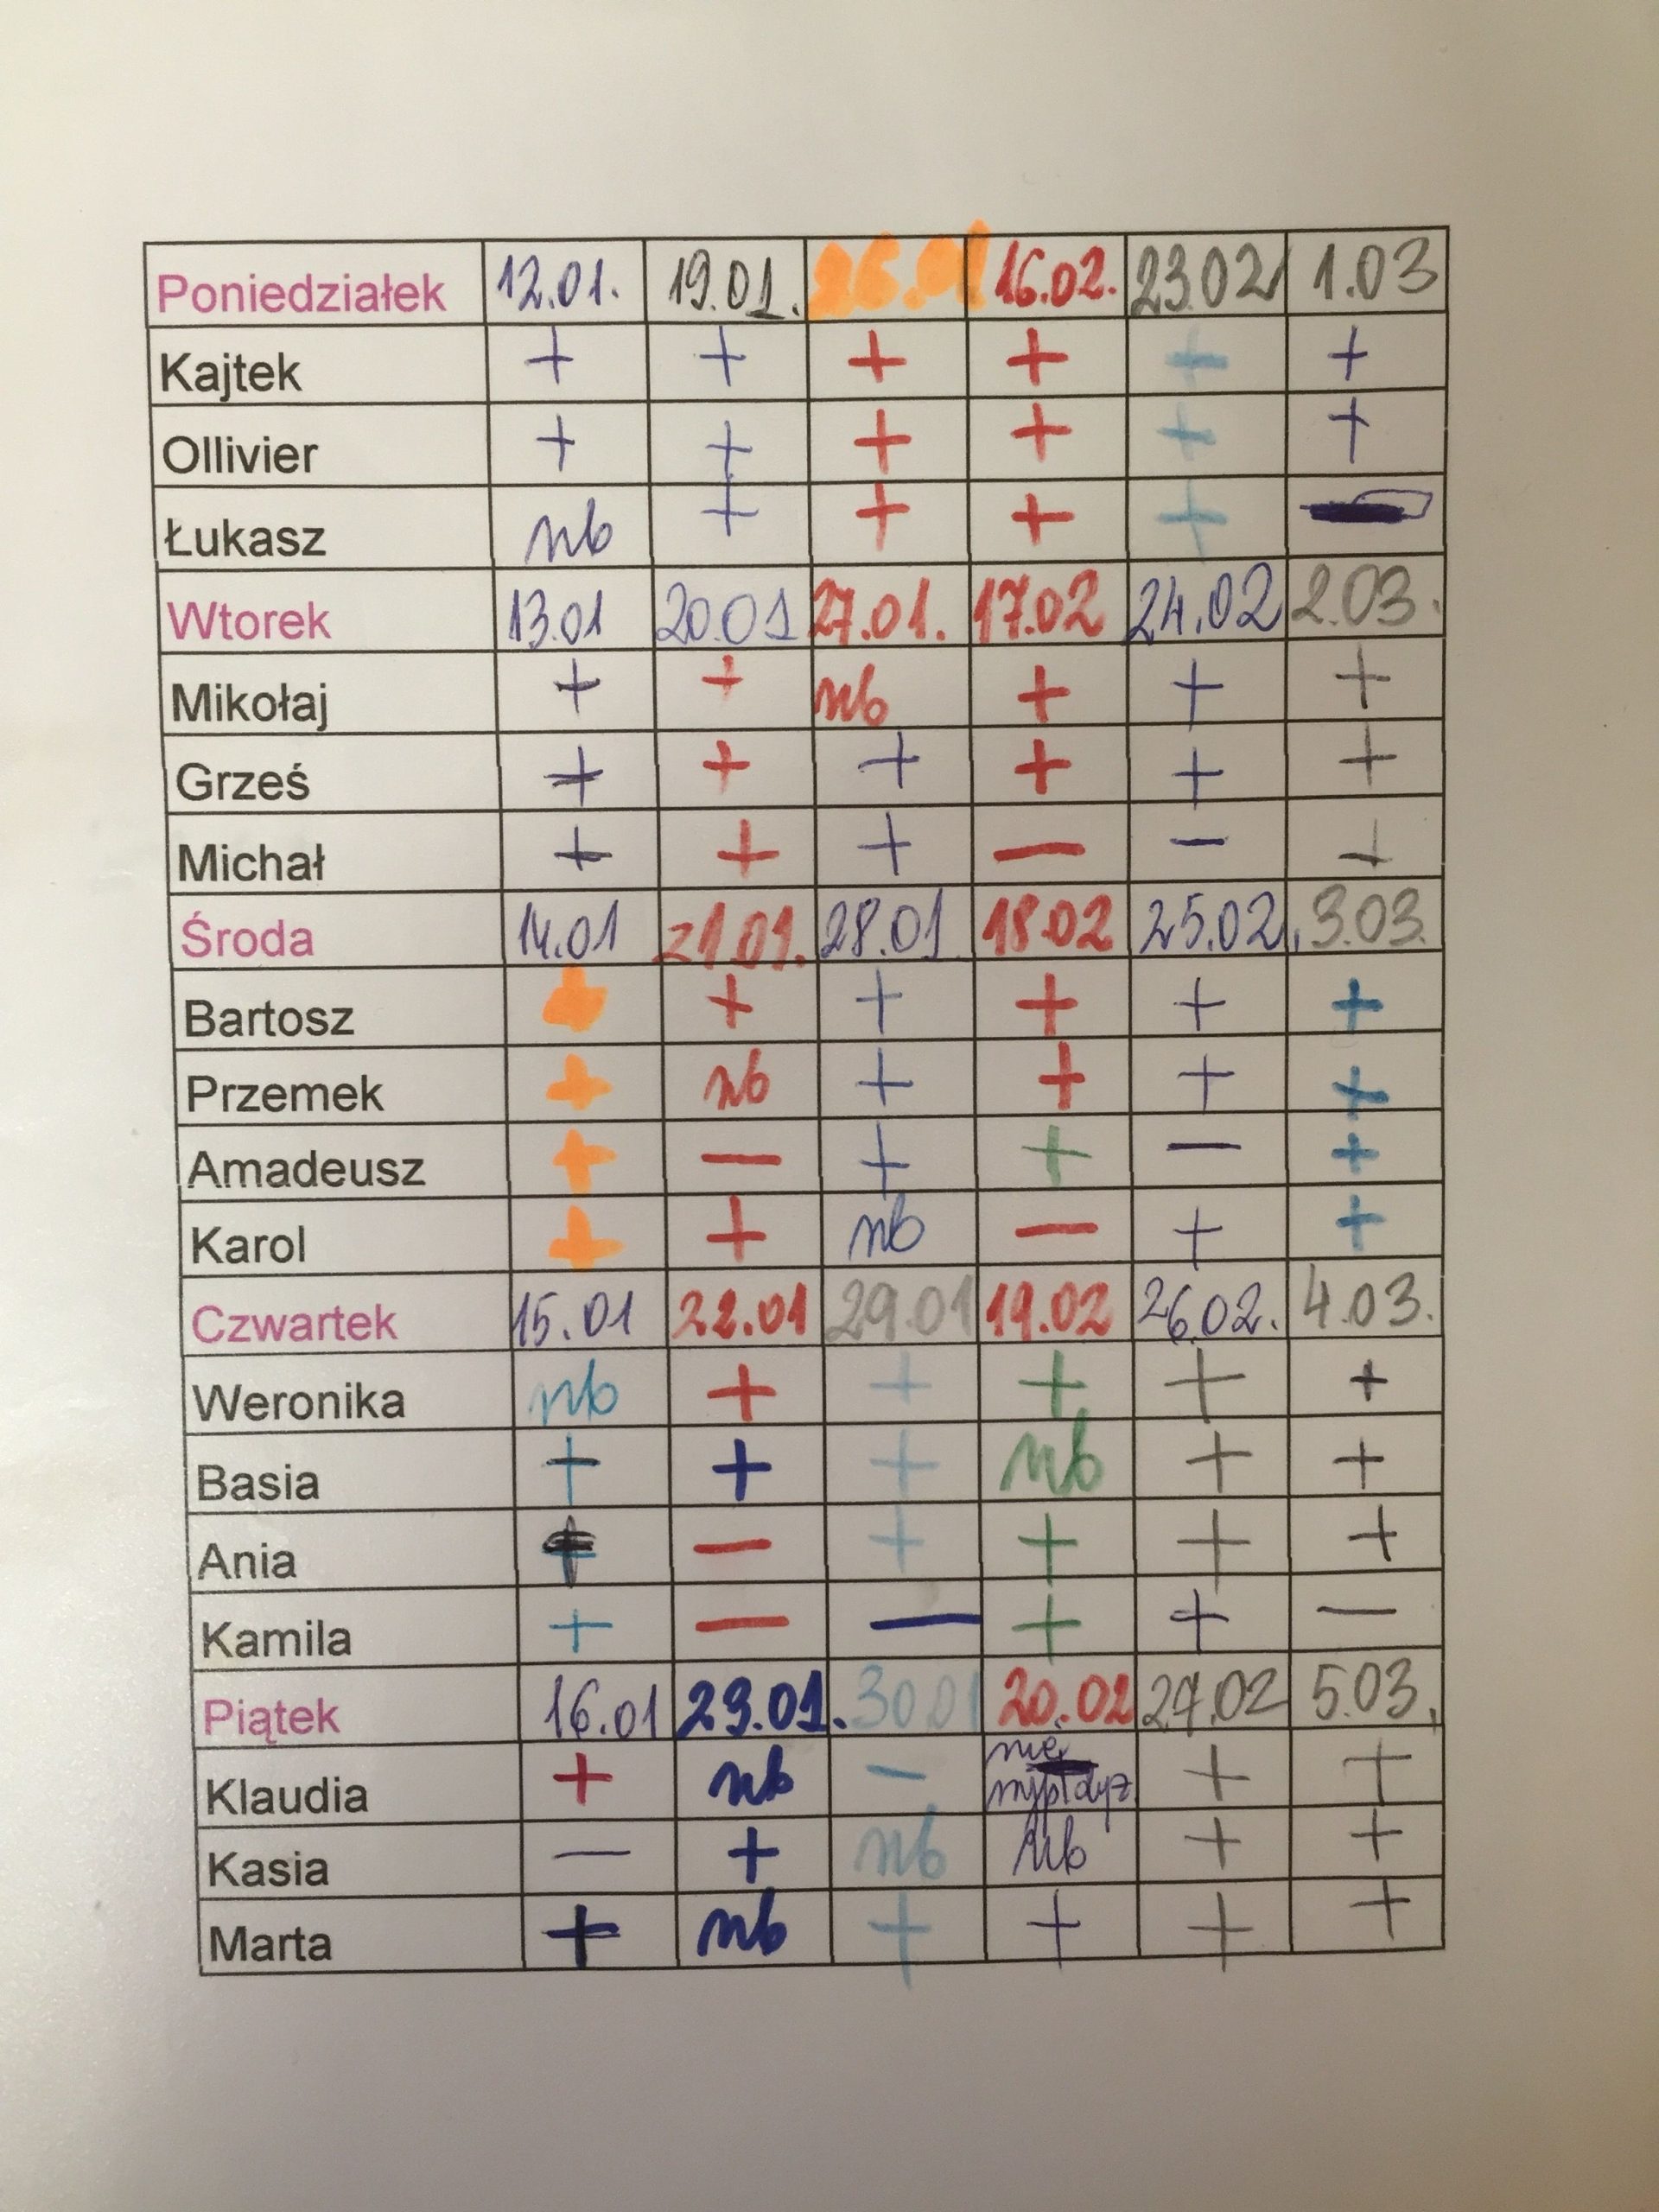 Poniedziałek 12.01. 19.01. 26.01 16.02. 23.02 1.03
Kajtek + + + + + +
Ollivier + + + + + +
Łukasz nb + + + + —
Wtorek 13.01 20.01 27.01. 17.02 24.02 2.03.
Mikołaj + + nb + + +
Grześ + + + + + +
Michał + + + — — +
Środa 14.01 21.01. 28.01. 18.02 25.02. 3.03.
Bartosz + + + + + +
Przemek + nb + + + +
Amadeusz + — + + — +
Karol + + nb — + +
Czwartek 15.01 22.01 29.01 19.02 26.02. 4.03.
Weronika nb + + + + +
Basia + + + nb + +
Ania + — + + + +
Kamila + — — + + —
Piątek 16.01 23.01. 30.01 20.02 27.02 5.03.
Klaudia + nb — nie + +
Kasia — + nb nb + +
Marta + nb + + + +